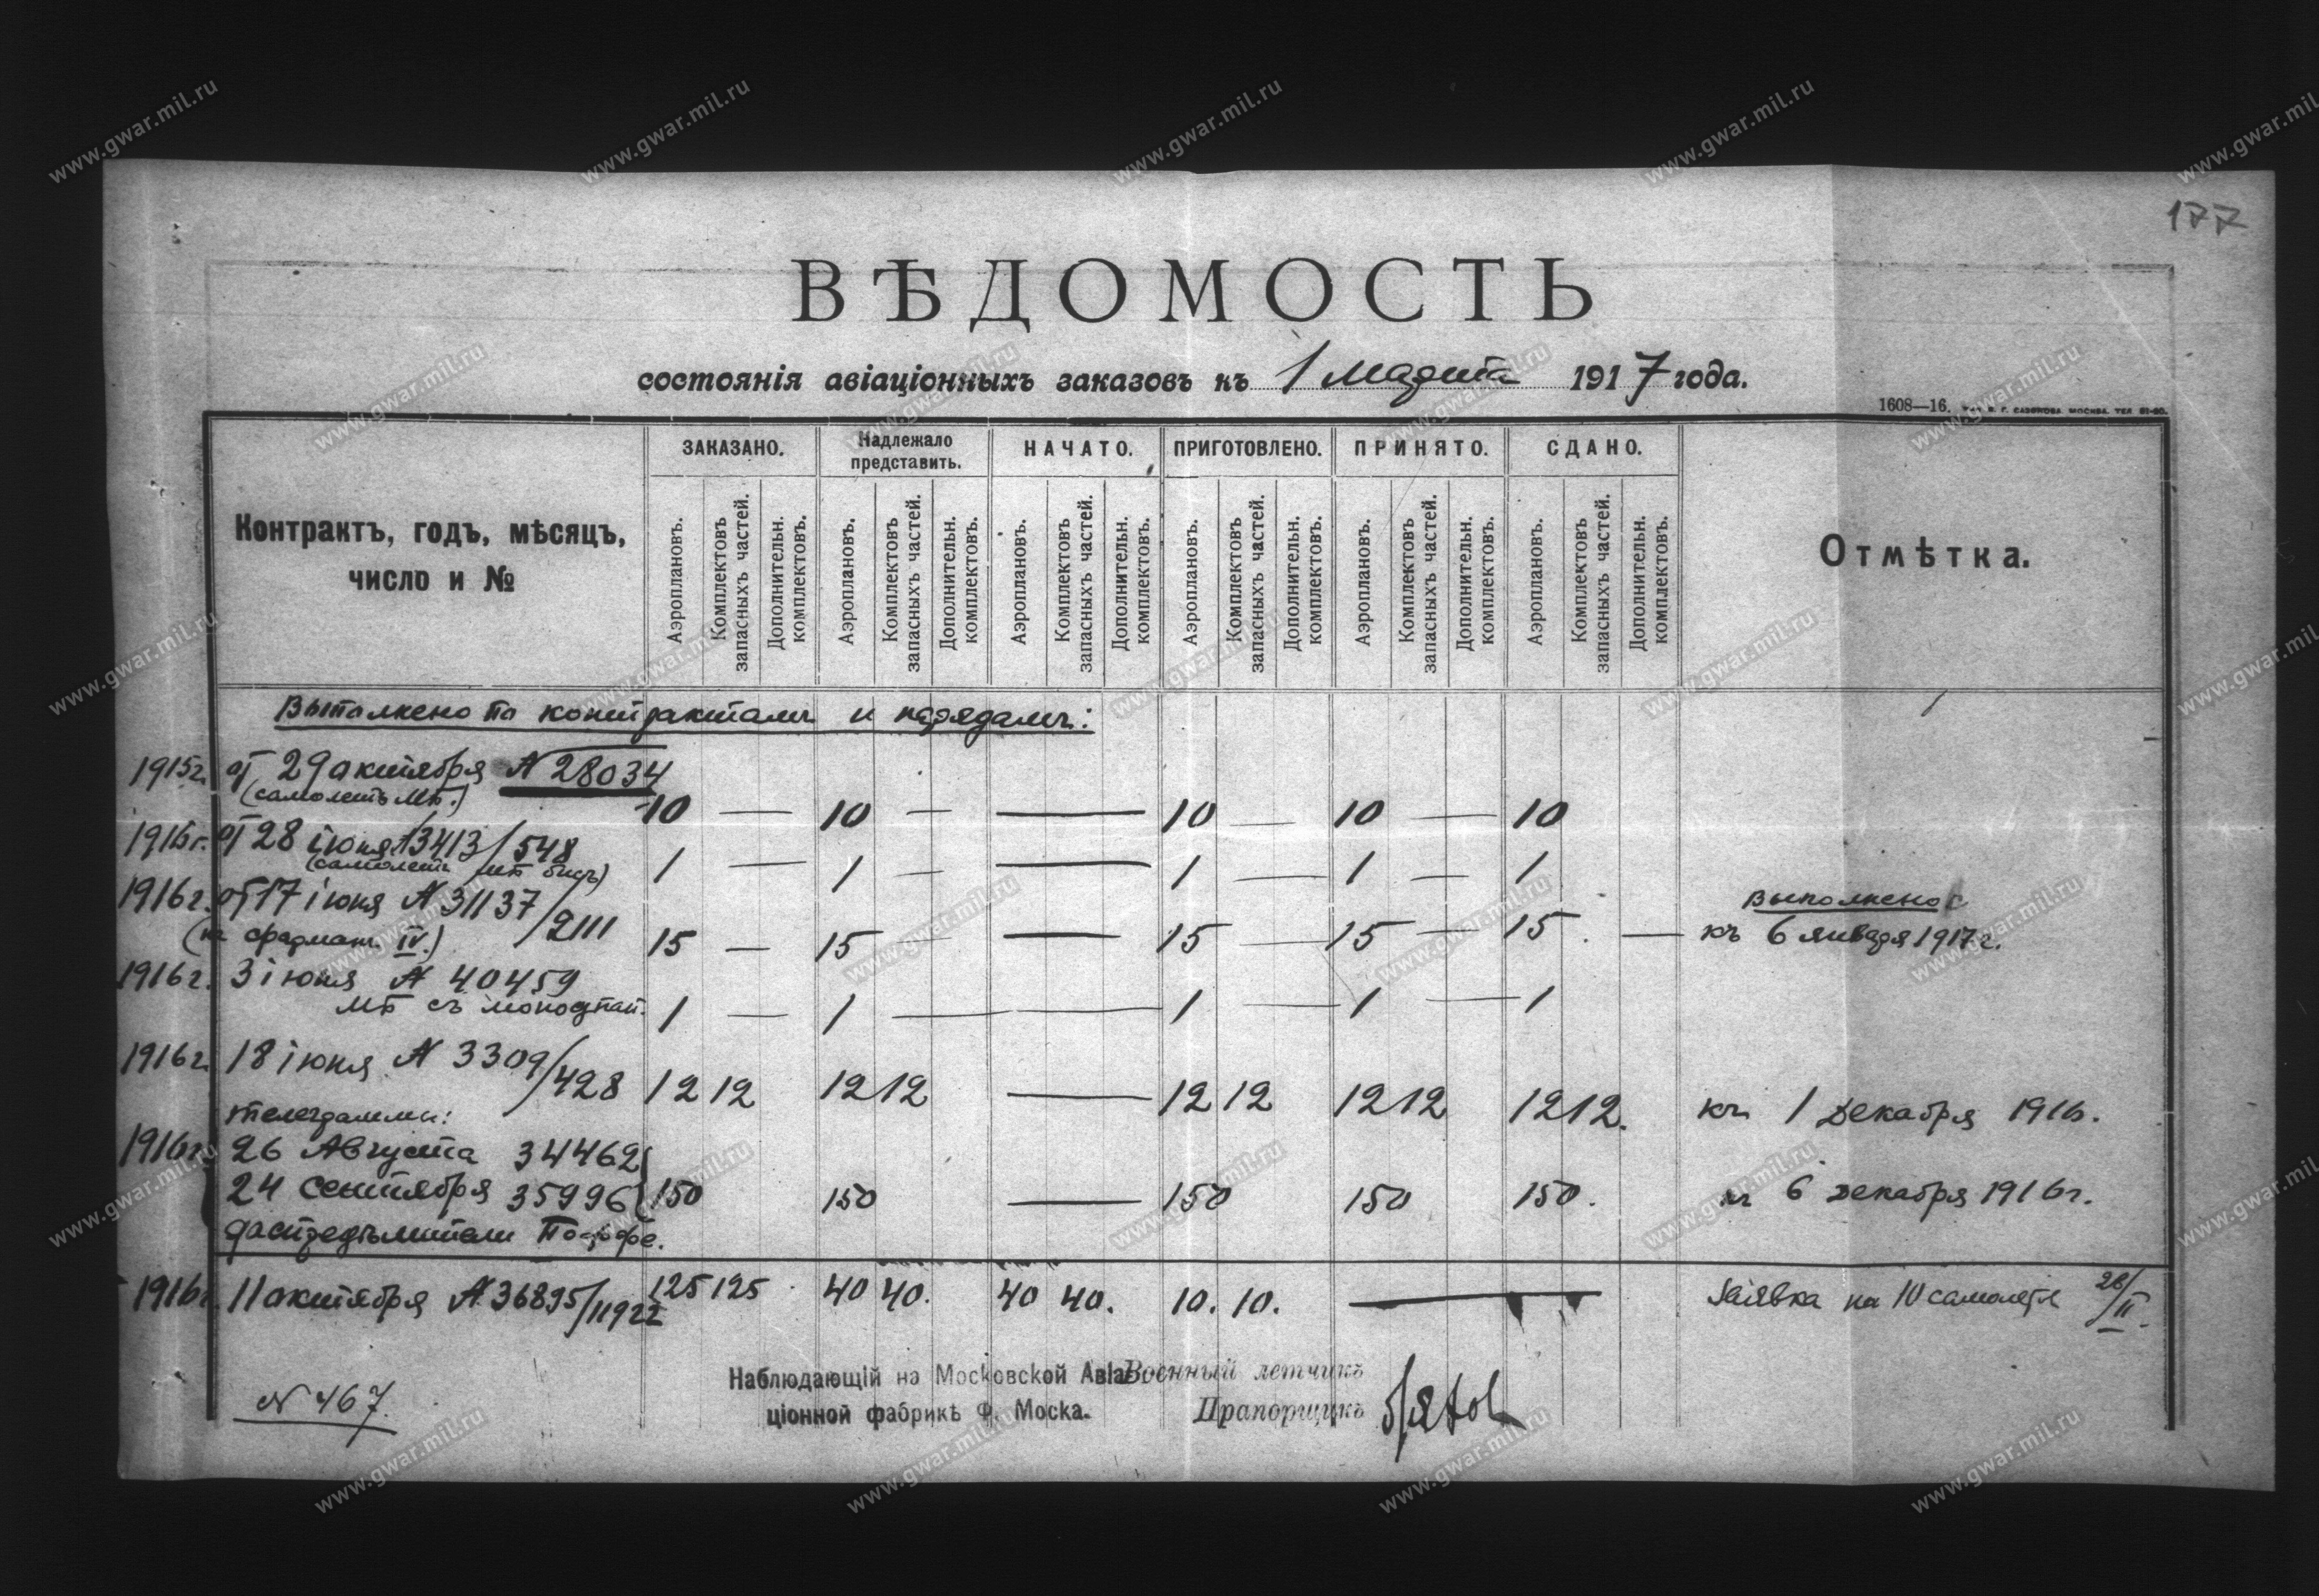 177
ВѢДОМОСТЬ
состоянія авіаціонныхъ заказовъ къ 1 марта 1917 года.
1608—16. Г. САЗОНОВА. МОСКВА. ТЕЛ.
Контрактъ, годъ, мѣсяцъ, число и №
ЗАКАЗАНО.
Надлежало представить.
НАЧАТО.
ПРИГОТОВЛЕНО.
ПРИНЯТО.
СДАНО.
Отмѣтка.
Аэроплановъ. Комплектовъ запасныхъ частей. Дополнительн. комплектовъ.
Аэроплановъ. Комплектовъ запасныхъ частей. Дополнительн. комплектовъ.
Аэроплановъ. Комплектовъ запасныхъ частей. Дополнительн. комплектовъ.
Аэроплановъ. Комплектовъ запасныхъ частей. Дополнительн. комплектовъ.
Аэроплановъ. Комплектовъ запасныхъ частей. Дополнительн. комплектовъ.
Аэроплановъ. Комплектовъ запасныхъ частей. Дополнительн. комплектовъ.
Выполнено по контрактамъ и нарядамъ:
1915г. от 29 октября № 28034
(самолетъ МБ.)
10 — 10 — — 10 — 10 — 10
1916г. от 28 іюня 13413/548
(самолетъ МБ бисъ)
1 — 1 — — 1 — 1 — 1
1916г. от 17 іюня № 31137/2111
(на фарман. IV.)
15 — 15 — — 15 — 15 — 15. — выполнено
къ 6 января 1917г.
1916г. 3 іюня № 40459
МБ съ моносупап.
1 — 1 — — 1 — 1 — 1
1916г. 18 іюня № 3309/428
12 12 12 12 — 12 12 12 12 12 12. къ 1 декабря 1916.
телеграммы:
1916г. 26 Августа 34462
24 сентября 35996
150 150 — 150 150 150. къ 6 декабря 1916г.
1916г. 11 октября № 36895/11922
125 125 40 40. 40 40. 10. 10. — Заявка на 10 самолета 28/II.
Наблюдающій на Московской Авіаціонной фабрикѣ Ф. Моска.
Военный летчикъ
Прапорщикъ
№ 467.
www.gwar.mil.ru